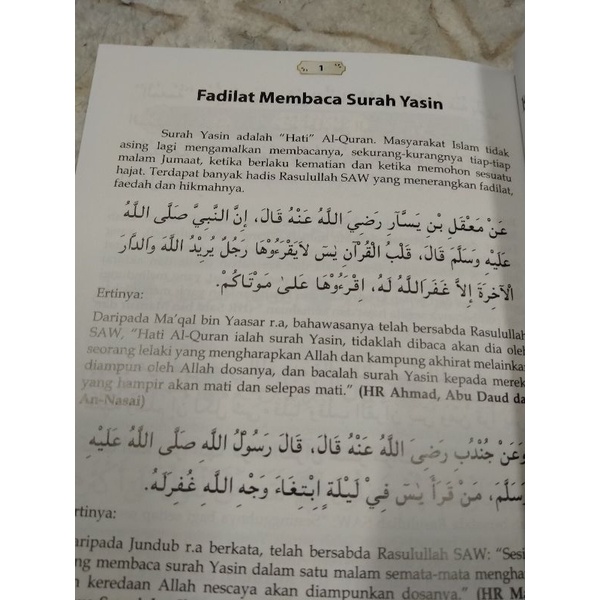 1
Fadilat Membaca Surah Yasin
Surah Yasin adalah "Hati" Al-Quran. Masyarakat Islam tidak
asing lagi mengamalkan membacanya, sekurang-kurangnya tiap-tiap
malam Jumaat, ketika berlaku kematian dan ketika memohon sesuatu
hajat. Terdapat banyak hadis Rasulullah SAW yang menerangkan fadilat,
faedah dan hikmahnya.
عَنْ مَعْقَلِ بْنِ يَسَآرِ رَضِيَ اللَّهُ عَنْهُ قَالَ، إِنَّ النَّبِيَّ صَلَّى اللَّهُ
عَلَيْهِ وَسَلَّمَ قَالَ، قَلْبُ الْقُرْآنِ يٰسٓ لاَيَقْرَءُوْهَا رَجُلٌ يُرِيْدُ اللَّهَ وَالدَّارَ
الْآخِرَةَ إِلاَّ غَفَرَاللَّهُ لَهُ، اِقْرَءُوْهَا عَلىٰ مَوْتَاكُمْ.
Ertinya:
Daripada Ma'qal bin Yaasar r.a, bahawasanya telah bersabda Rasulullah
SAW, "Hati Al-Quran ialah surah Yasin, tidaklah dibaca akan dia oleh
seorang lelaki yang mengharapkan Allah dan kampung akhirat melainkan
diampun oleh Allah dosanya, dan bacalah surah Yasin kepada merek
yang hampir akan mati dan selepas mati." (HR Ahmad, Abu Daud da
An-Nasai)
وَعَنْ جُنْدُبِ رَضِيَ اللَّهُ عَنْهُ قَالَ، قَالَ رَسُوْلُ اللَّهِ صَلَّى اللَّهُ عَلَيْهِ
وَسَلَّمَ، مَنْ قَرَأَ يٰسٓ فِيْ لَيْلَةٍ اِبْتِغَاءَ وَجْهِ اللَّهِ غُفِرَلَهُ.
rtinya:
aripada Jundub r.a berkata, telah bersabda Rasulullah SAW: "Sesi
ng membaca surah Yasin dalam satu malam semata-mata mengha
n keredaan Allah nescaya akan diampunkan dosanya." (HR Ma